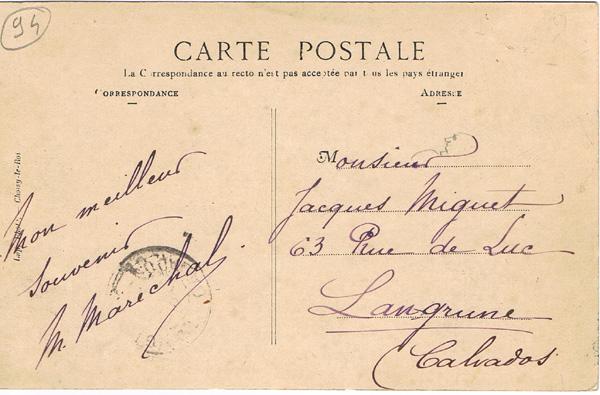 94
CARTE POSTALE
La Correspondance au recto n'est pas acceptée par tous les pays étranger
CORRESPONDANCE
ADRESSE
Choisy-le-Roi
Mon meilleur
souvenir
M. Maréchal
Monsieur
Jacques Miguet
63 Rue de Luc
Langrune
(Calvados